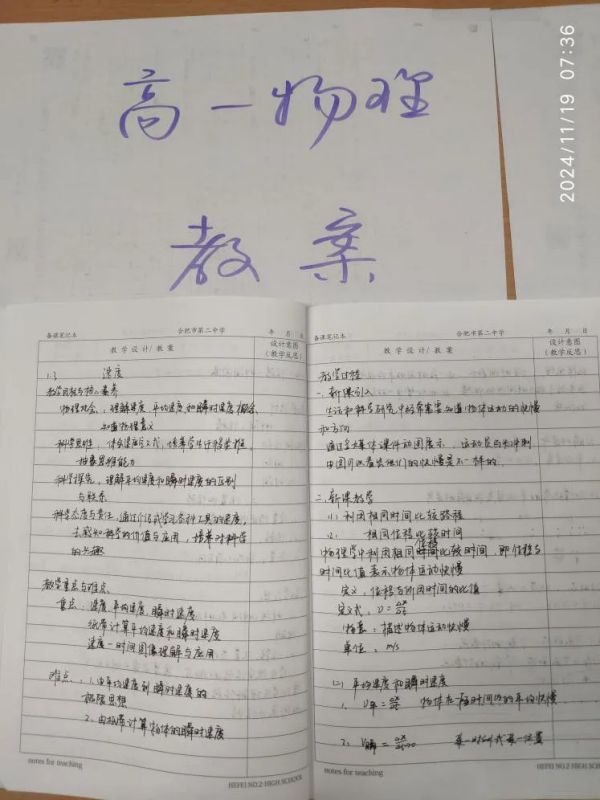 高一物理
教案
2024/11/19 07:36
备课笔记本 合肥市第二中学 年 月 日
教学设计/教案 设计意图(教学反思)
1.3 速度
教学目标与核心素养
物理观念:理解速度、平均速度和瞬时速度概念
知道物理意义
科学思维:体会速度定义式,培养学生迁移类推、
抽象思维能力
科学探究:理解平均速度和瞬时速度的区别
与联系
科学态度与责任:通过学习各种工具的速度,
去感知科学的价值与应用,培养对科学
的兴趣
教学重点与难点
重点:速度、平均速度、瞬时速度
纸带计算平均速度和瞬时速度
速度—时间图像理解与应用
难点:1.由平均速度到瞬时速度的
极限思想
2.由纸带计算物体的瞬时速度
notes for teaching HEFEI NO.2 HIGH SCHOOL
备课笔记本 合肥市第二中学 年 月 日
教学设计/教案 设计意图(教学反思)
教学过程
一、新课引入
生活和科学研究中经常需要知道物体运动的快慢
和方向
通过多媒体课件动图展示,运动员百米冲刺
中国
他们的快慢是不一样的
二、新课教学
(1)利用相同时间比较路程
相同位移比较时间
位移
物理学中利用相同时间比较时间,即位移与
时间比值表示物体运动快慢
定义:位移与所用时间的比值
定义式:v=Δx/Δt
物意:描述物体运动快慢
单位:m/s
(2)平均速度和瞬时速度
1. v平=Δx/Δt 物体在 时间内的平均快慢
2. v瞬=Δx/Δt 某一时刻或某一位置
notes for teaching HEFEI NO.2 HIGH SCHOOL